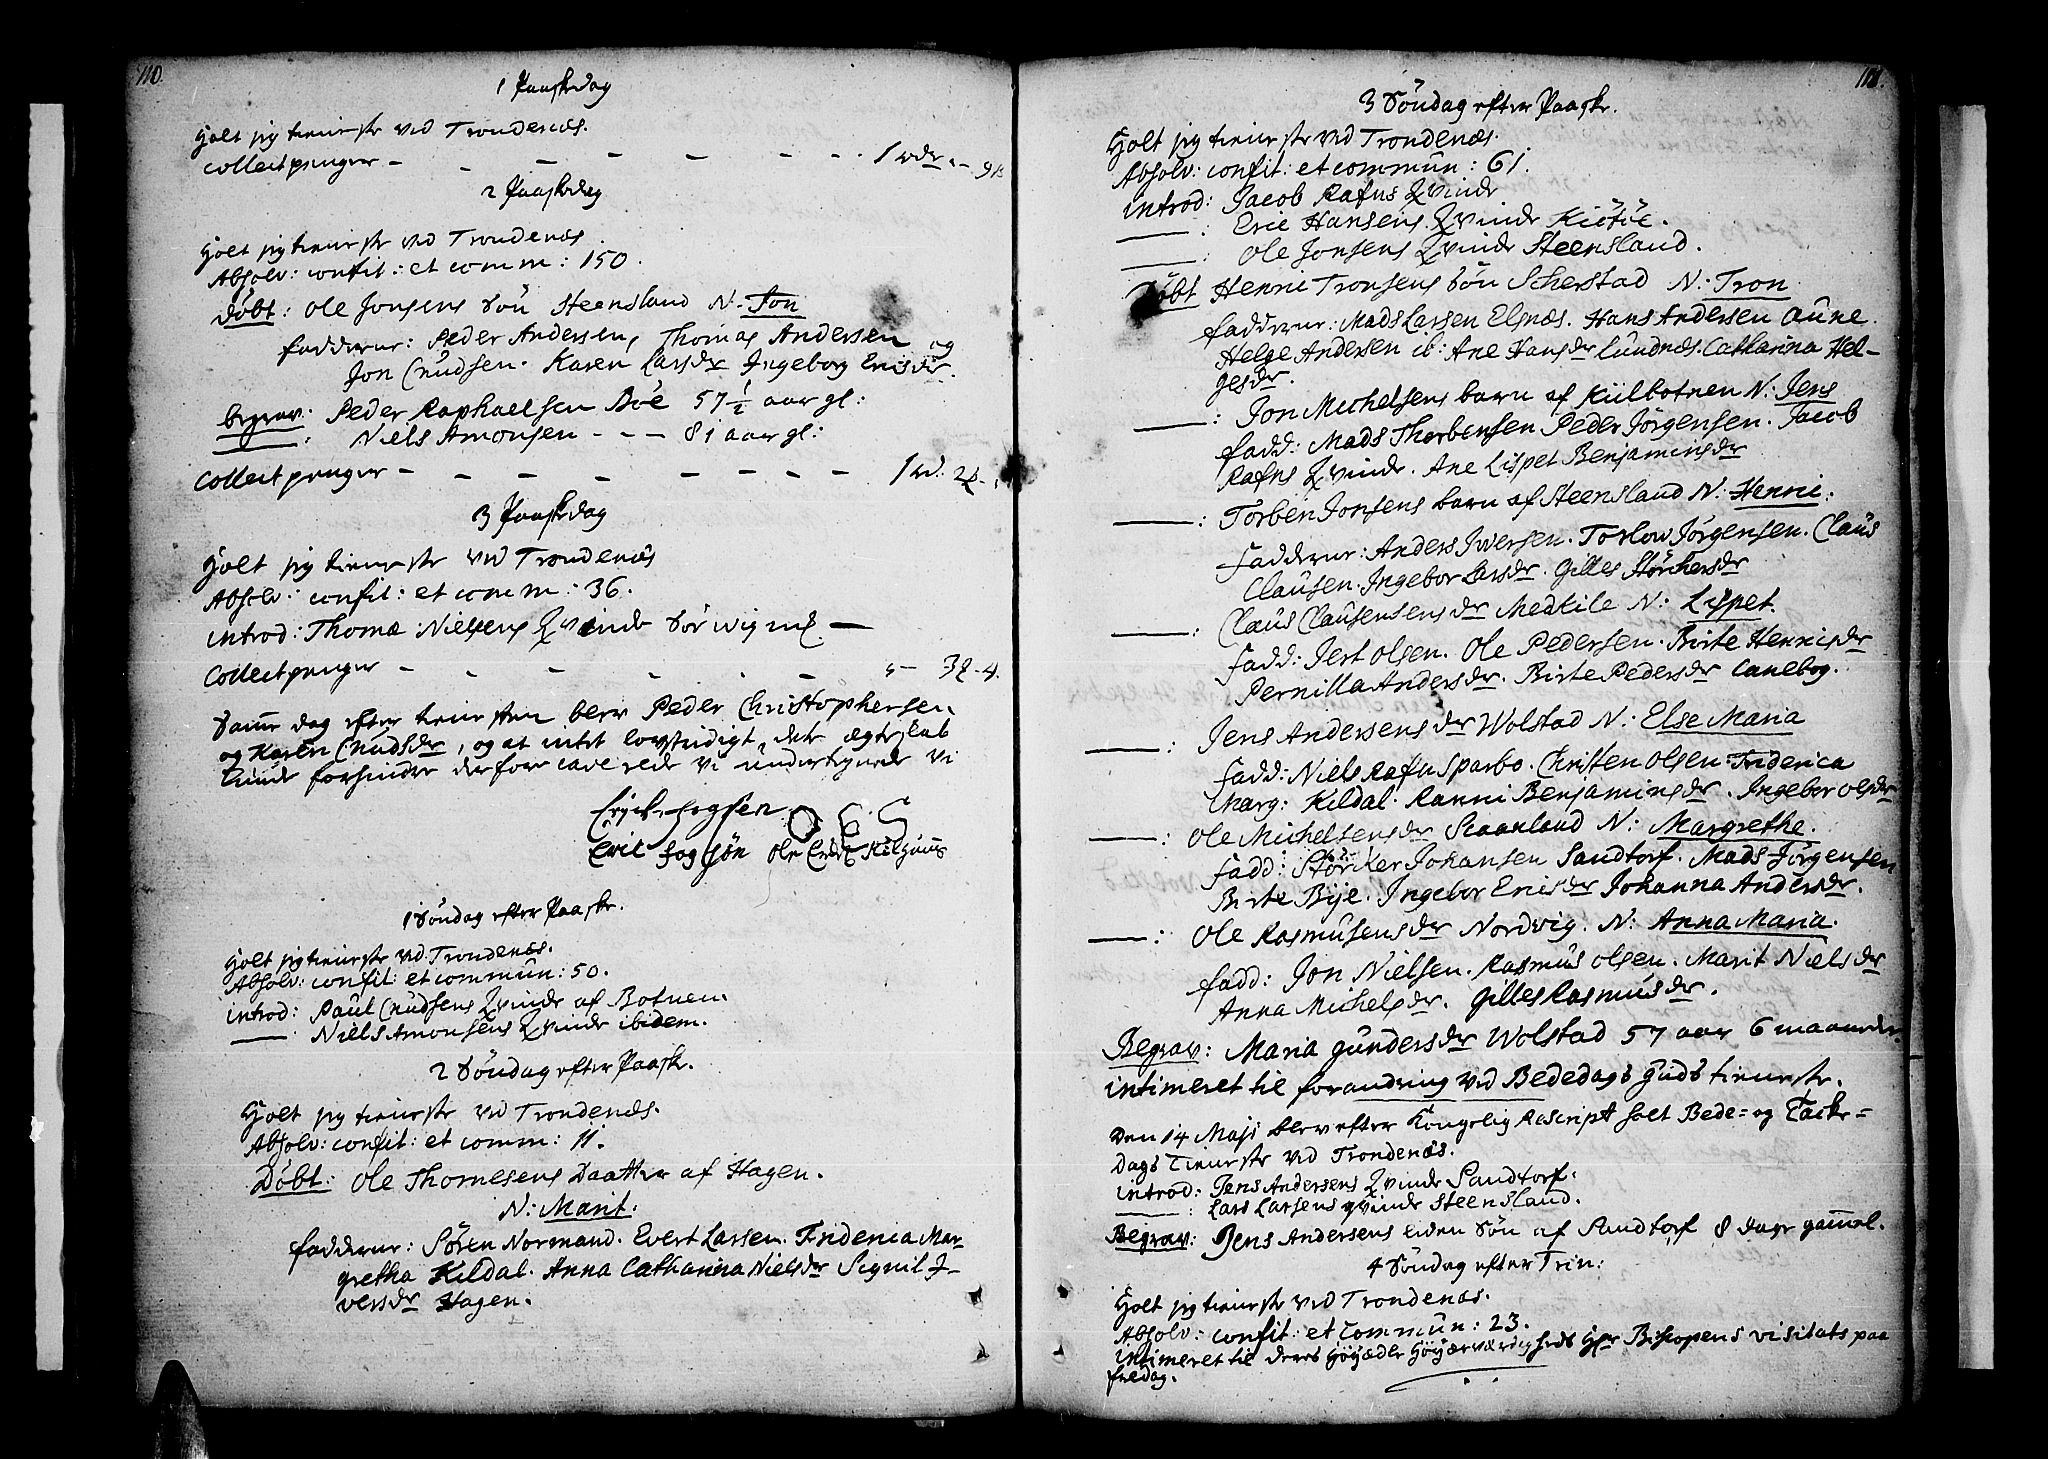 110.
1 Paaskedag
Holt jeg tieniste ved Trondenæs.
Collect penger — — — — — — 1 rdr
2 Paaskedag
Holt jeg tieniste ved Trondenæs
Absolv: confit: et comm: 150.
Døbt: Ole Jonsens Søn Steensland N. Jon
fadderne: Peder Andersen, Thomas Andersen og
Jon Cnudsen. Karen Larsdr Ingeborg Ericsdr.
begrav: Peder Raphaelsen Böe 57 ½ aar gl:
——: Niels Amonsen - - — 81 aar gl:
Collect penger — — — — — — — 1 rd:
3 Paaskedag
Holt jeg tieniste ved Trondenæs
Absolv: confit: et comm: 36.
introd: Thomæ Nielsens Qvinde Sörwigen —
Collect penger — — — — — —
Samme dag efter tienesten blev Peder Christophersen
og Karen Cnudsdr, og at intet lovstridigt dete ægteskab
kunde forhindre derfore cavere vi undertegnede vi
Eric Jogsön Ole
1 Söndag efter Paaske.
Holt jeg tieniste ved Trondenæs.
Absolv: confit: et commun: 50.
introd: Paul Cnudsens Qvinde af Botnen.
——: Niels Amonsens Qvinde ibidem.
2 Söndag efter Paaske.
Holt jeg tieniste ved Trondenæs.
Absolv: confit: et comm: 11.
Døbt: Ole Thomesens Daatter af Hagen.
N: Marit.
fadderne: Sören Normand. Evert Larsen. Fridenica Mar-
gretha Kildal. Anna Catharina Nielsdr Signil I-
versdr Hagen.
111.
3 Söndag efter Paaske.
Holt jeg tieniste ved Trondenæs.
Absolv: confit: et commun: 61.
introd: Jacob Rafns Qvinde
——: Eric Hansens Qvinde Kiötöe.
——: Ole Jonsens Qvinde Steensland.
Döbt Henric Tronsens Sön Scherstad N: Tron
fadderne: Mads Larsen Elgnæs. Hans Andersen Aune
Helge Andersen ib: Ane Hansdr Lundnæs. Catharina Hel-
gesdr.
——: Jon Michelsens barn af Kiilbotnen N: Jens
fadd: Mads Thorbensen Peder Jörgensen. Jacob
Rafns Qvinde. Ane Lispet Benjaminsdr
——: Torben Jonsens barn af Steensland N: Henric.
fadderne: Anders Iversen. Torlow Jörgensen. Claus
Clausen. Ingebor Larsdr. Gilles Störkersdr
——: Claus Clausensens dr Medkile N: Lispet.
fadd: Jert Olsen. Ole Pedersen. Birte Henricsdr
Pernilla Andersdr. Birte Pedersdr Canebog.
——: Jens Andersens dr Wolstad N: Else Maria
fadd: Niels Rafn Sparbo. Christen Olsen Friderica
Marg: Kildal. Ranni Benjaminsdr. Ingebor Olsdr
——: Ole Michelsens dr Scaanland N: Margrethe.
fadd: Störker Johansen Sandtorf. Mads Jörgensen
Birte Bije. Ingebor Ericsdr Johanna Andersdr.
——: Ole Rasmusens dr Nordwig. N: Anna Maria.
fadd: Jon Nielsen. Rasmus Olsen. Marit Nielsdr
Anna Michelsdr. Gilles Rasmusdr.
Begrav: Maria Gundersdr Wolstad 57 aar 6 maaneder.
intimeret til forandring ved Bededags Guds tieneste.
Den 14 Maji blev efter Kongelig Rescript holt Bede= og Tacke=
Dags Tieneste ved Trondenæs.
introd: Jens Andersens Qvinde Sandtorf.
——: Lars Larsens qvinde Steensland.
Begrav: Jens Andersens liden Sön af Sandtorf 8 dage gamel.
4 Söndag efter Trin:
Holt jeg tieneste ved Trondenæs.
Absolv: confit: et Commun: 23.
intimeret til deres Höyædle Höyærværdigheds Hr Biscopens visitats paa
fredag.